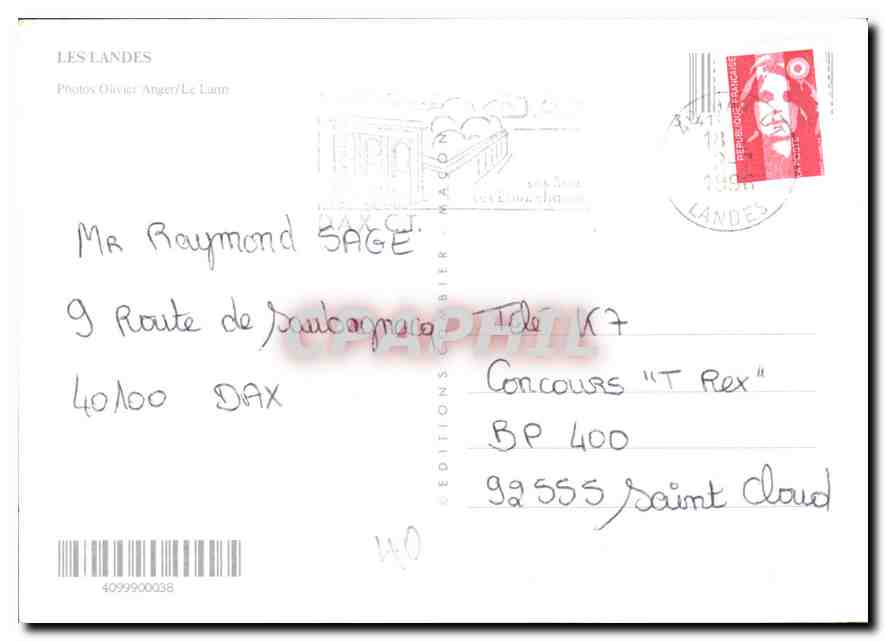 LES LANDES
Photos Olivier Anger/Le Lann
RÉPUBLIQUE FRANÇAISE
LA POSTE
41
1996
LANDES
DAX CT.
Mr Raymond SAGE
9 Route de Saubagnacq
40100 DAX
Télé K7
Concours "T Rex"
BP 400
92555 Saint Cloud
CPAPHIL
© EDITIONS COMBIER - MACON
40
4099900038